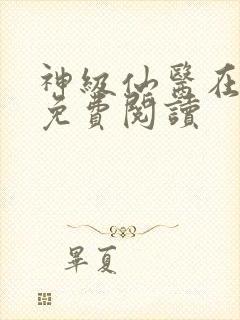 神級仙醫在
免費閱讀
畢夏